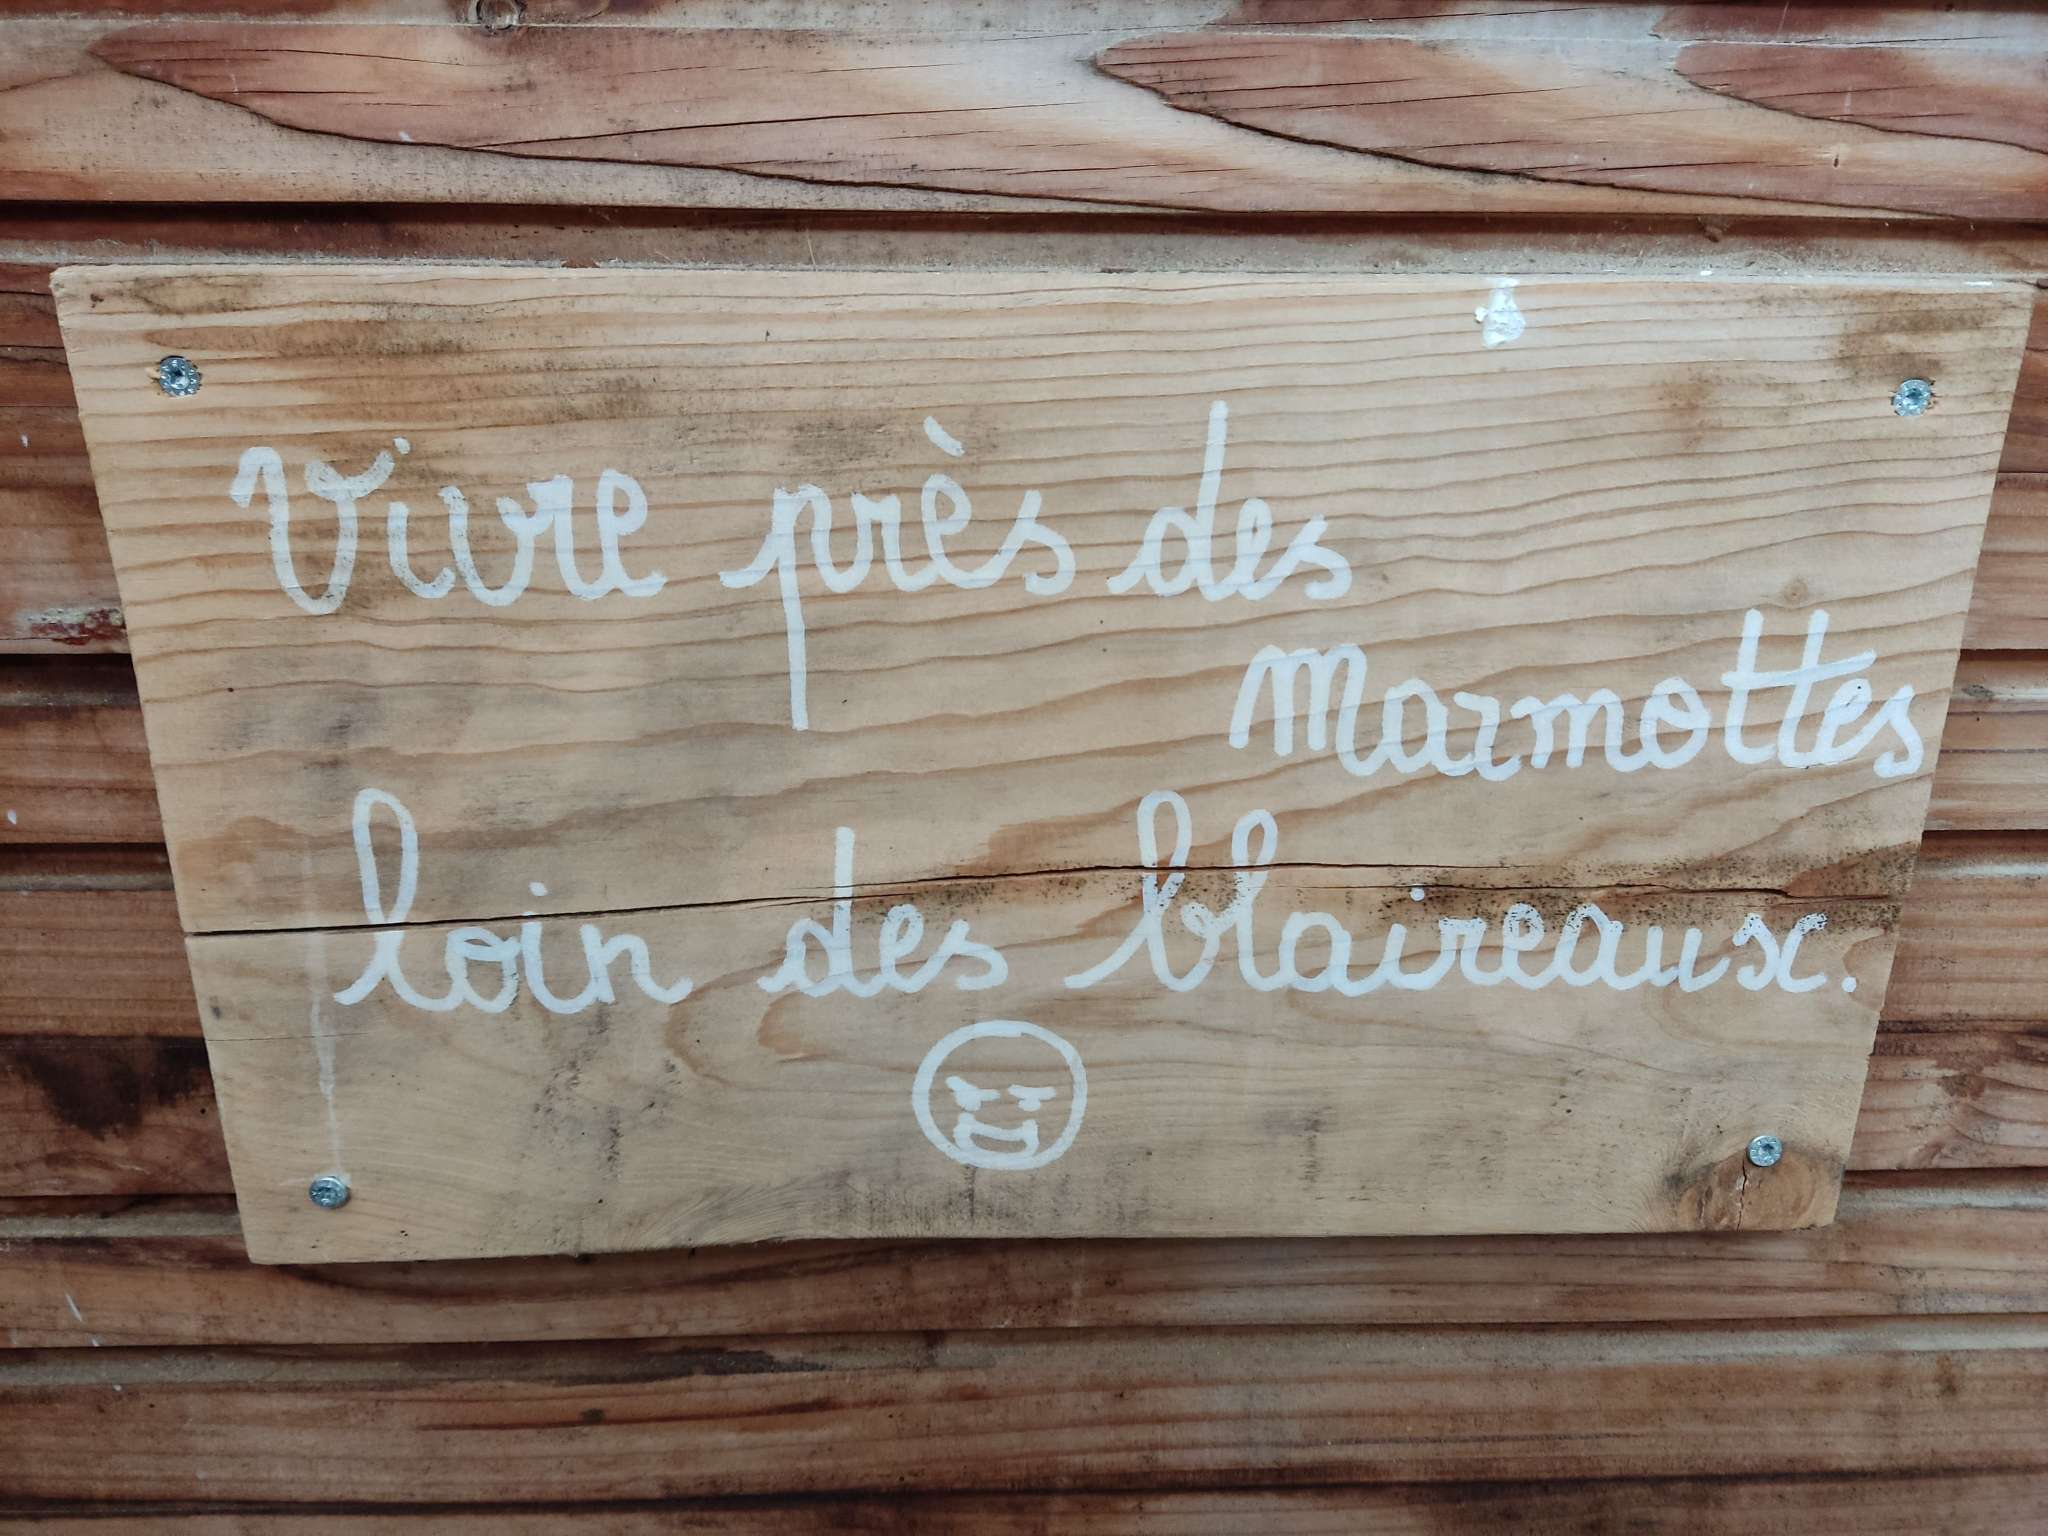 Vivre près des
Marmottes
loin des blaireaux.